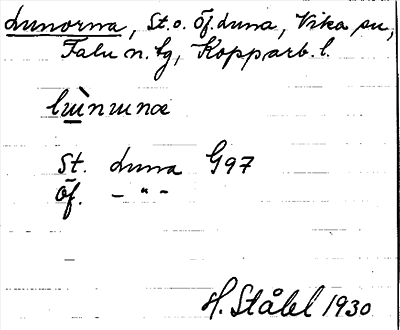 Lunorna, St. o. Öf. Luna, Vika sn,
Falu n. tg, Kopparb. l.
St. Luna G97
Öf. – " –
H. Ståhl 1930